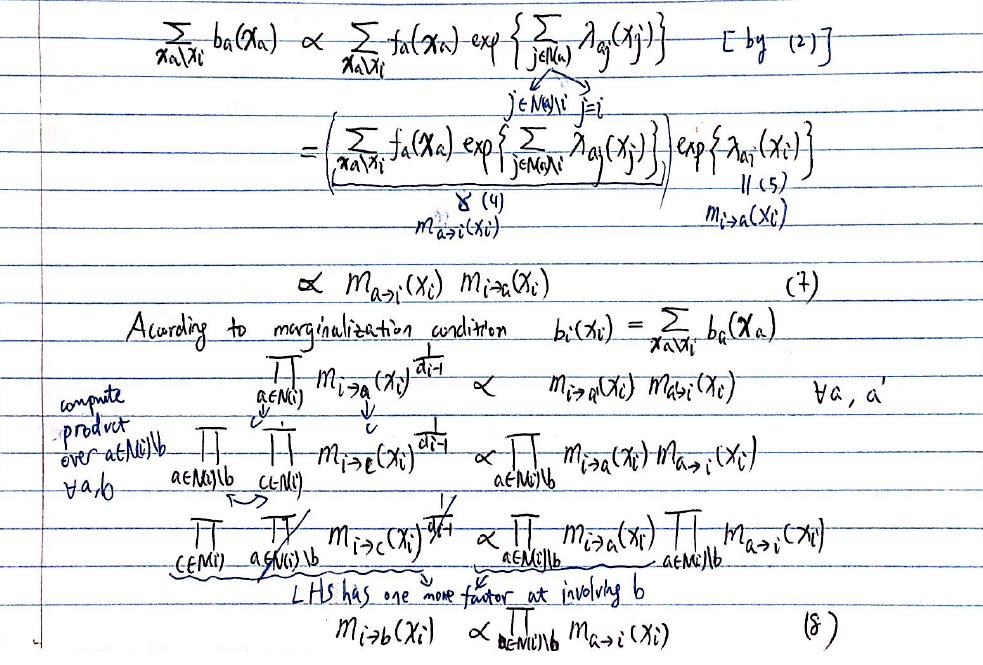 ∑_{x_a\x_i} b_a(x_a) ∝ ∑_{x_a\x_i} f_a(x_a) exp { ∑_{j∈N(a)} λ_{aj}(x_j) } [by (2)]
j∈N(a)\i j=i
= ( ∑_{x_a\x_i} f_a(x_a) exp { ∑_{j∈N(a)\i} λ_{aj}(x_j) } ) exp { λ_{ai}(x_i) }
∝ (4) || (5)
m_{a→i}(x_i) m_{i→a}(x_i)
∝ m_{a→i}(x_i) m_{i→a}(x_i) (7)
According to marginalization condition b_i(x_i) = ∑_{x_a\x_i} b_a(x_a)
∏_{a∈N(i)} m_{i→a}(x_i)^{1/(d_i-1)} ∝ m_{i→a'}(x_i) m_{a'→i}(x_i) ∀a, a'
c c
compute
product
over a∈N(i)\b
∀a,b
∏_{a∈N(i)\b} ∏_{c∈N(i)} m_{i→c}(x_i)^{1/(d_i-1)} ∝ ∏_{a∈N(i)\b} m_{i→a}(x_i) m_{a→i}(x_i)
∏_{c∈N(i)} ∏_{a∈N(i)\b} m_{i→c}(x_i)^{1/(d_i-1)} ∝ ∏_{a∈N(i)\b} m_{i→a}(x_i) ∏_{a∈N(i)\b} m_{a→i}(x_i)
LHS has one more factor at involving b
m_{i→b}(x_i) ∝ ∏_{a∈N(i)\b} m_{a→i}(x_i) (8)